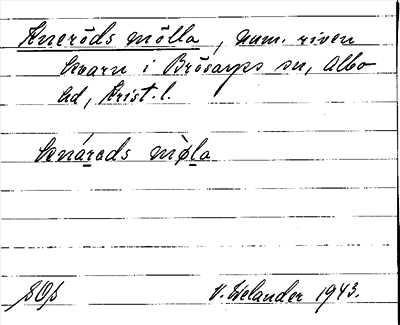 Kneröds mölla, num. riven
kvarn i Brösarps sn, Albo
hd, Krist. l.
knárads mø̀la
V. Welander 1943.